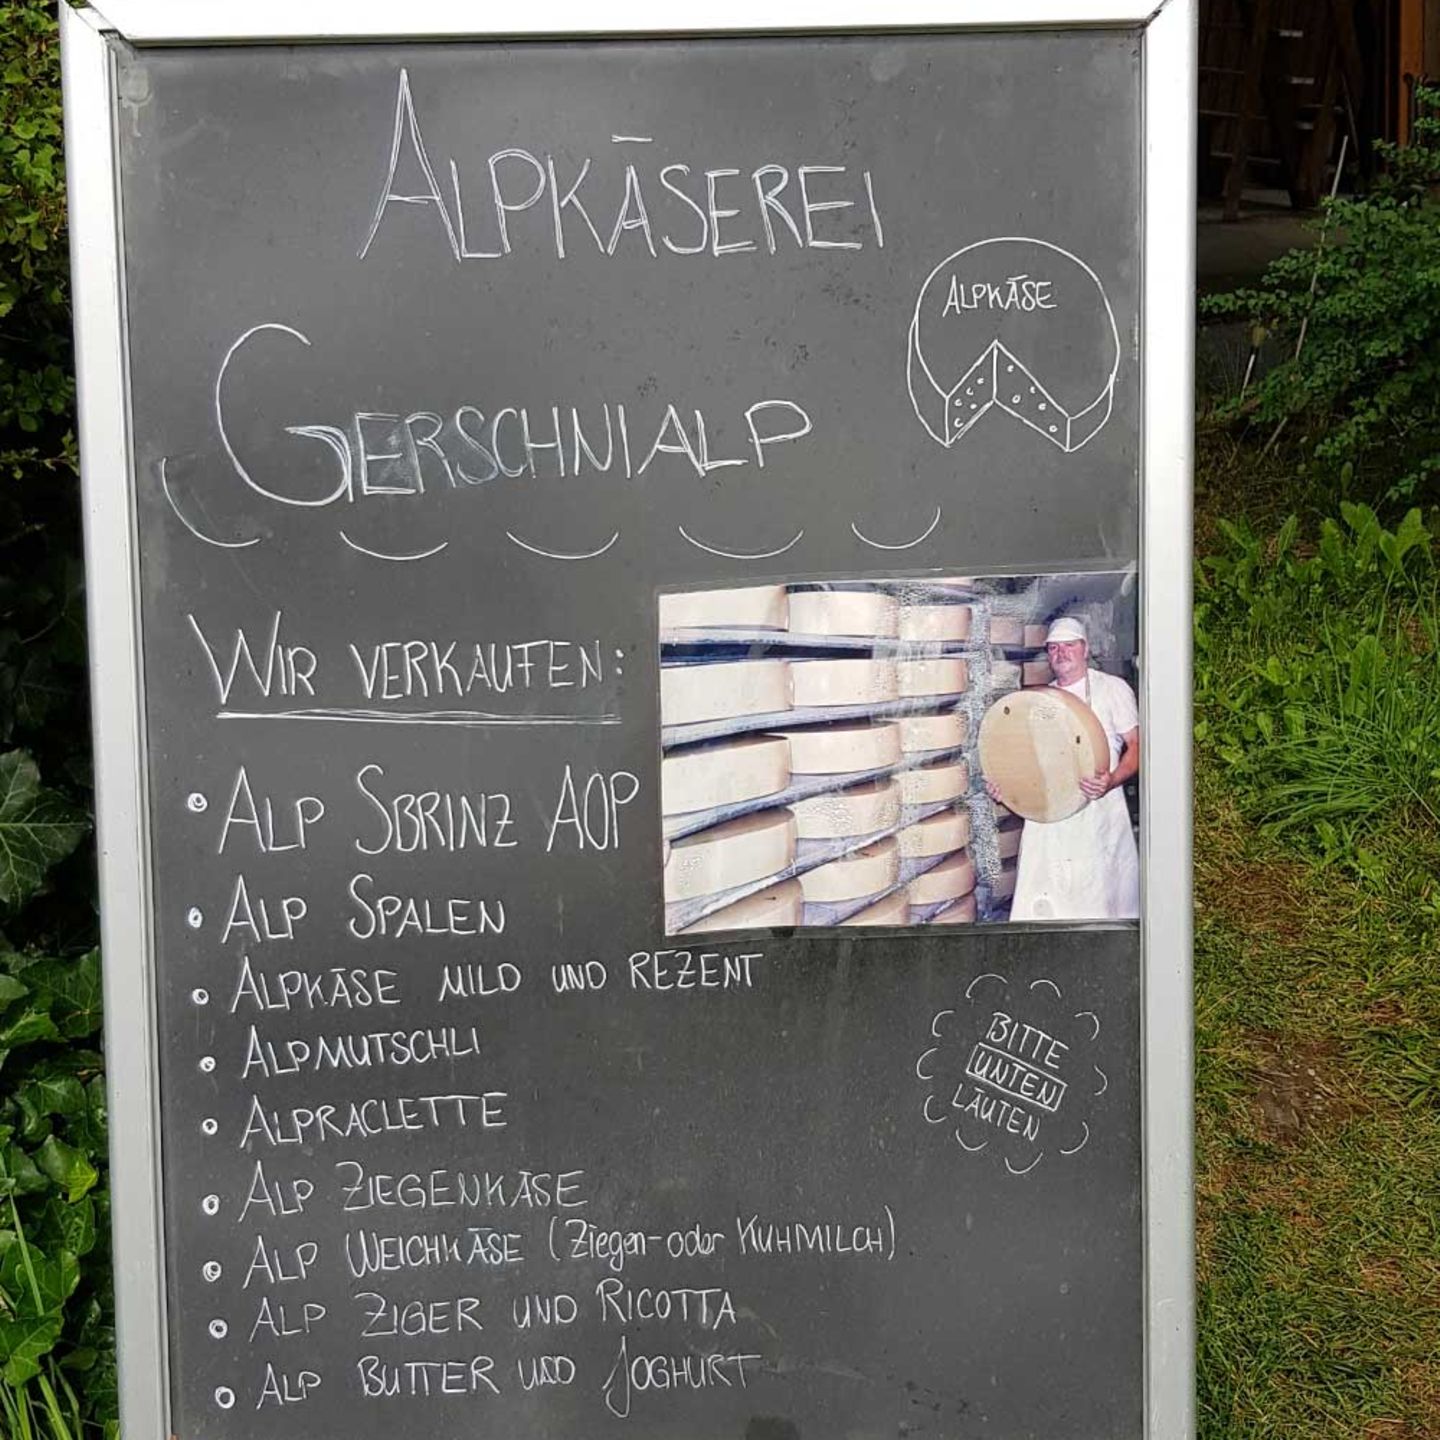 ALPKÄSEREI
ALPKÄSE
GERSCHNIALP
WIR VERKAUFEN:
• ALP SBRINZ AOP
• ALP SPALEN
• ALPKÄSE MILD UND REZENT
• ALPMUTSCHLI
• ALPRACLETTE
• ALP ZIEGENKÄSE
• ALP WEICHKÄSE (Ziegen- oder KUHMILCH)
• ALP ZIGER UND RICOTTA
• ALP BUTTER UND JOGHURT
BITTE
UNTEN
LÄUTEN